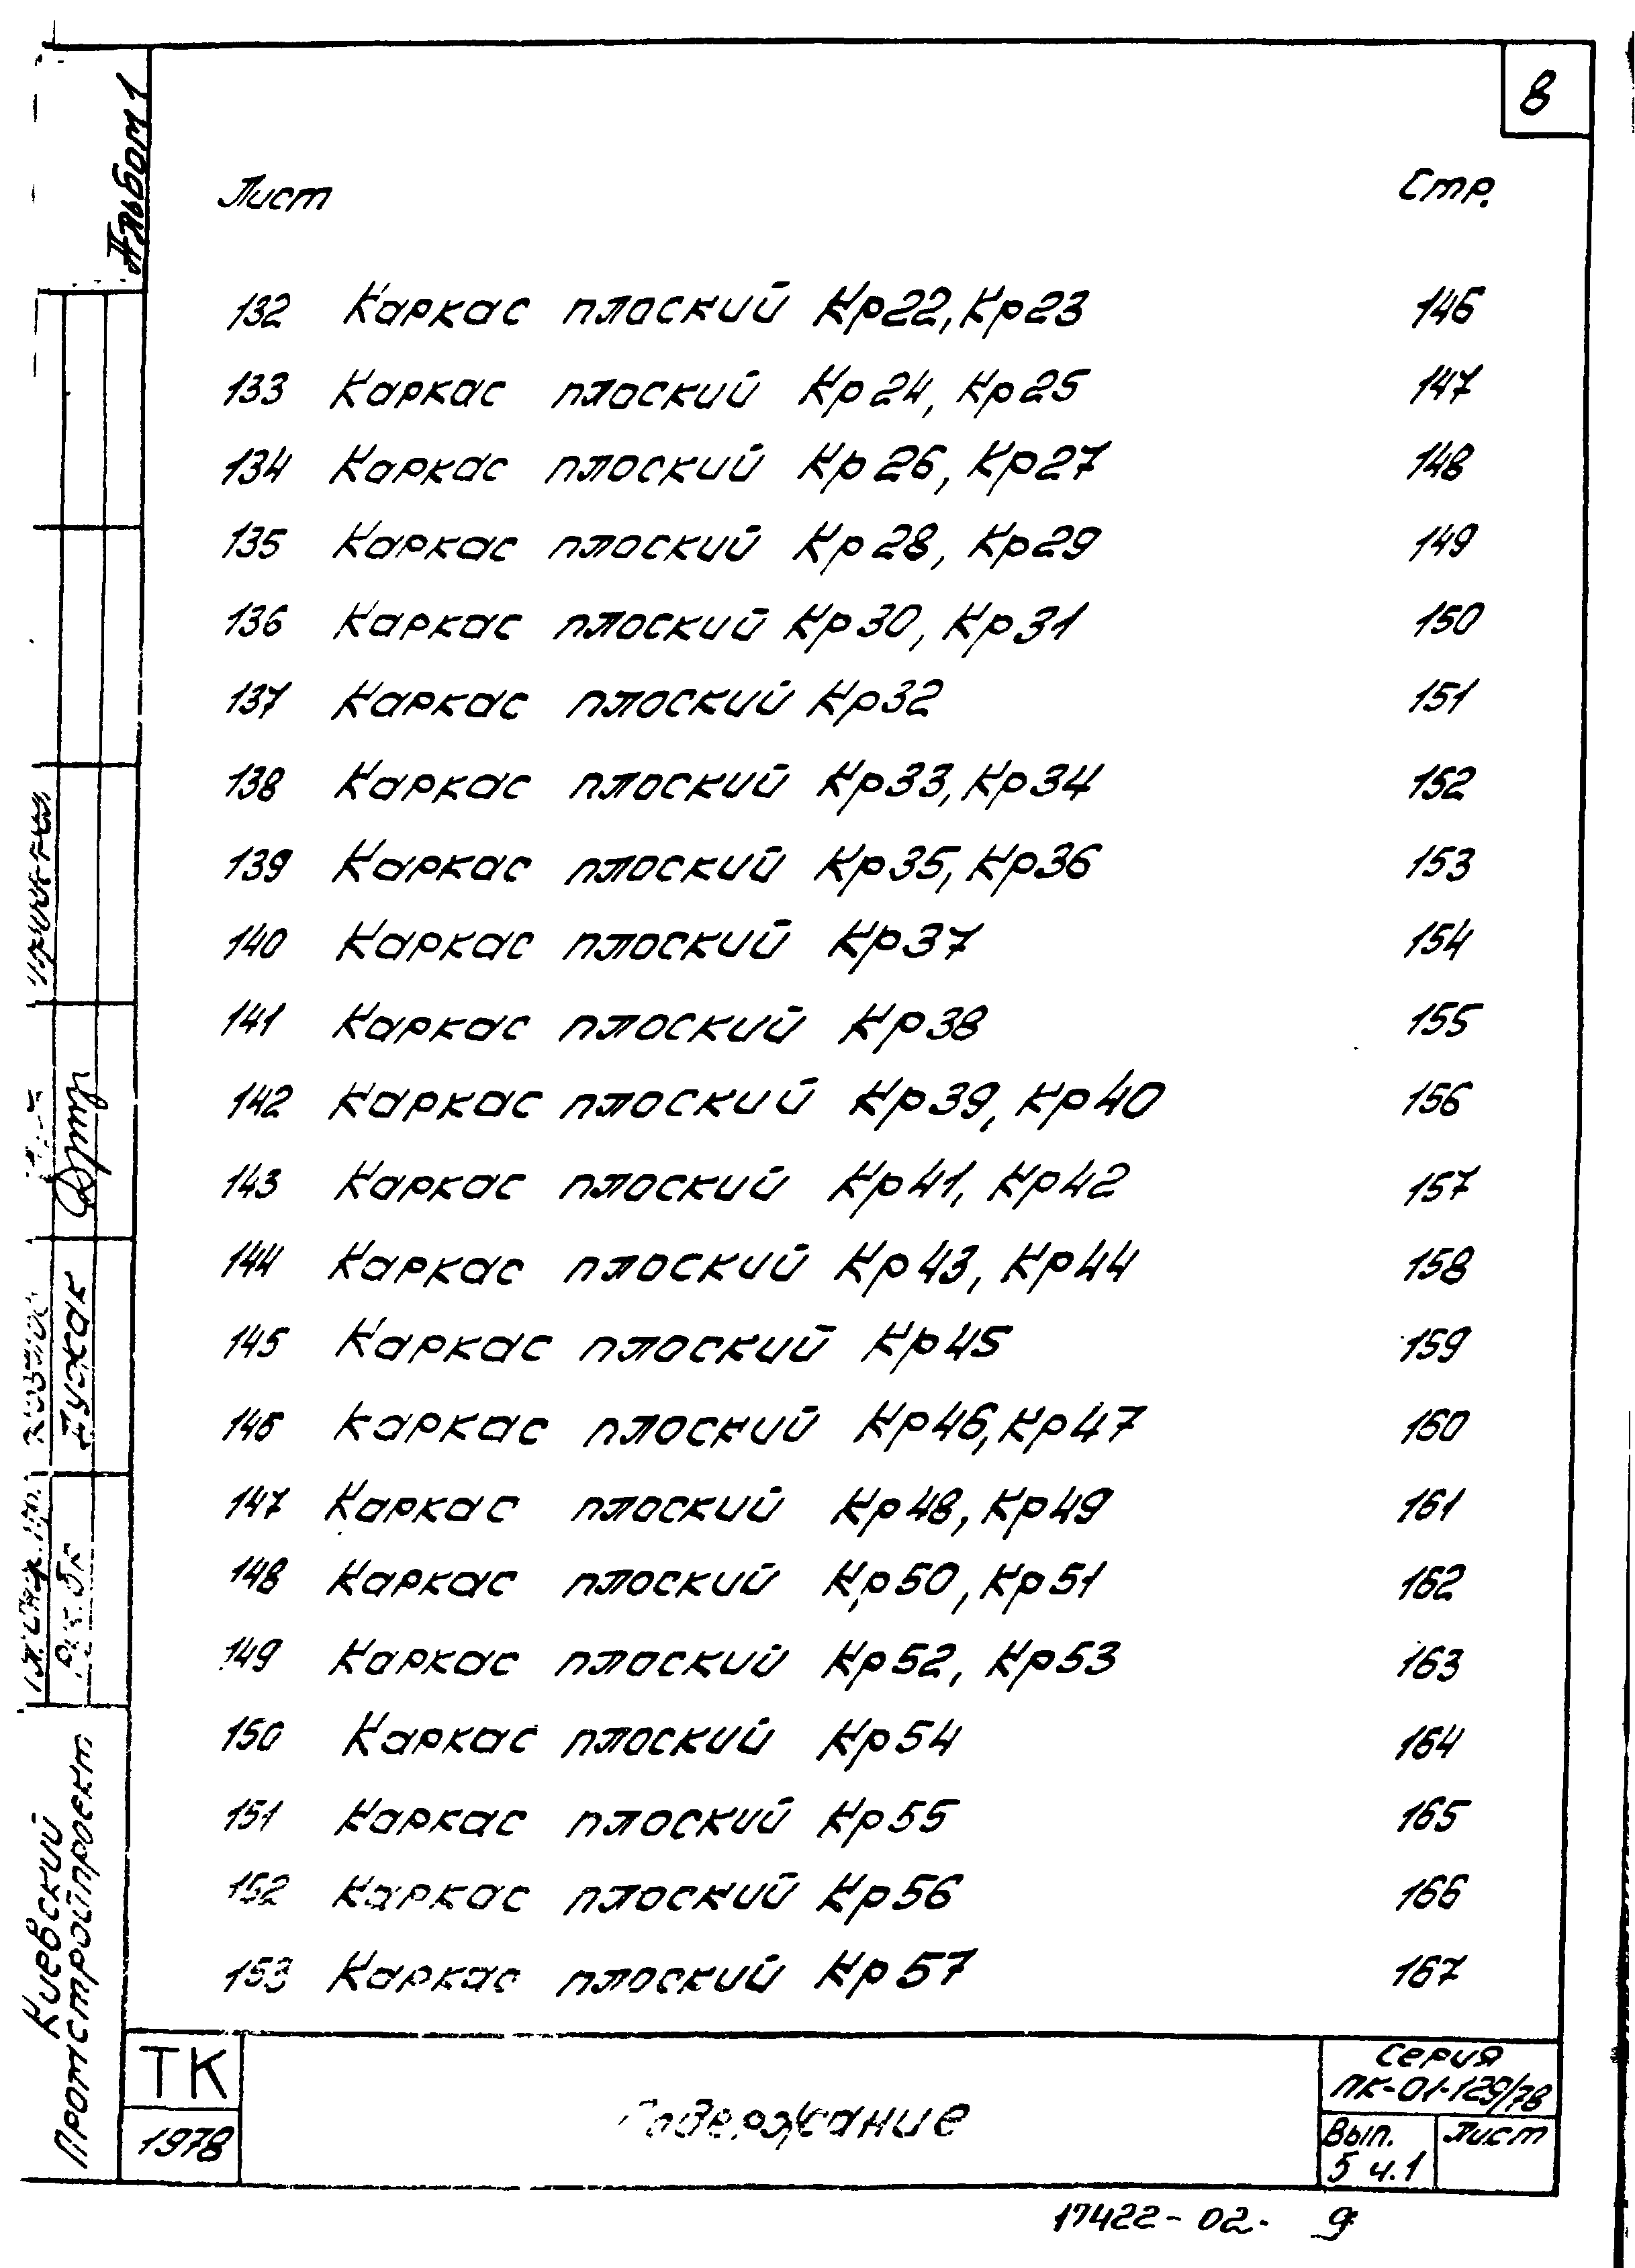 8
Альбом 1
Лист Стр.
132 Каркас плоский Кр22, Кр23 146
133 Каркас плоский Кр24, Кр25 147
134 Каркас плоский Кр26, Кр27 148
135 Каркас плоский Кр28, Кр29 149
136 Каркас плоский Кр30, Кр31 150
137 Каркас плоский Кр32 151
138 Каркас плоский Кр33, Кр34 152
139 Каркас плоский Кр35, Кр36 153
140 Каркас плоский Кр37 154
141 Каркас плоский Кр38 155
142 Каркас плоский Кр39, Кр40 156
143 Каркас плоский Кр41, Кр42 157
144 Каркас плоский Кр43, Кр44 158
145 Каркас плоский Кр45 159
146 Каркас плоский Кр46, Кр47 160
147 Каркас плоский Кр48, Кр49 161
148 Каркас плоский Кр50, Кр51 162
149 Каркас плоский Кр52, Кр53 163
150 Каркас плоский Кр54 164
151 Каркас плоский Кр55 165
152 Каркас плоский Кр56 166
153 Каркас плоский Кр57 167
Киевский
Промстройпроект
ТК
1978
Содержание
Серия
ПК-01-129/78
Вып.
5 ч.1
Лист
17422-02- 9